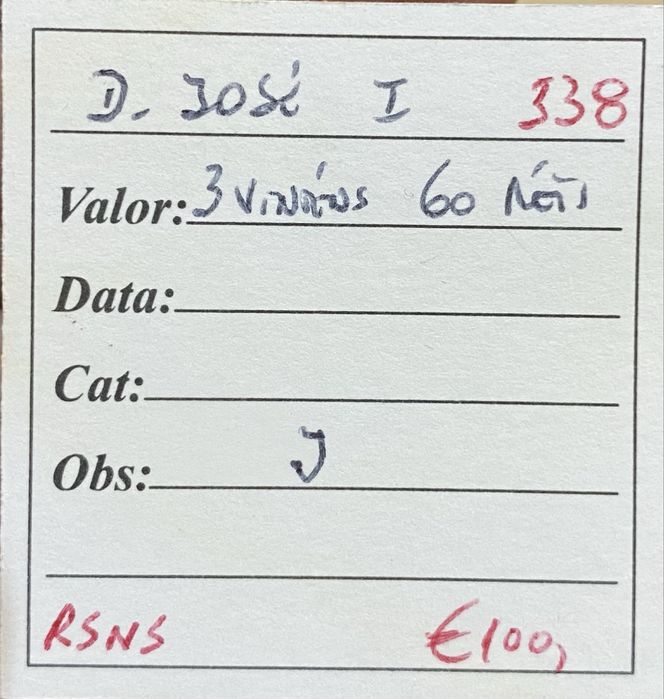 D. JOSÉ I 338
Valor: 3 Vinténs 60 Réis
Data:
Cat:
Obs: J
RSNS €100,